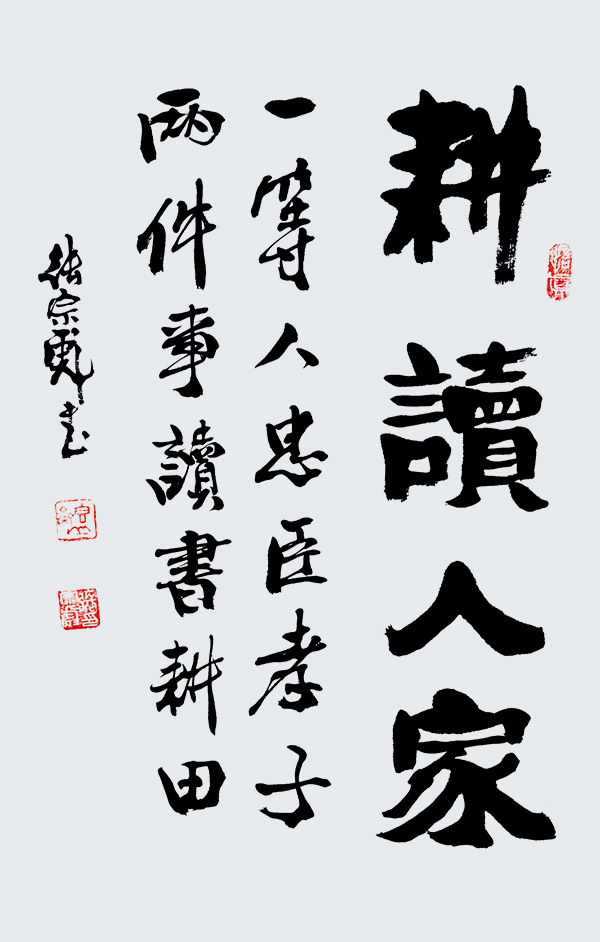 耕讀人家
一等人忠臣孝子
兩件事讀書耕田
張宗彪书